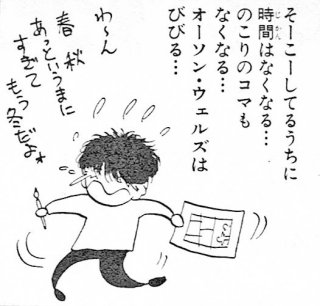 そーこーしてるうちに
時間はなくなる…
じかん
のこりのコマも
なくなる…
オーソン・ウェルズは
びびる…
わ〜ん
春秋
あっというまに
すぎて
もう冬だよ